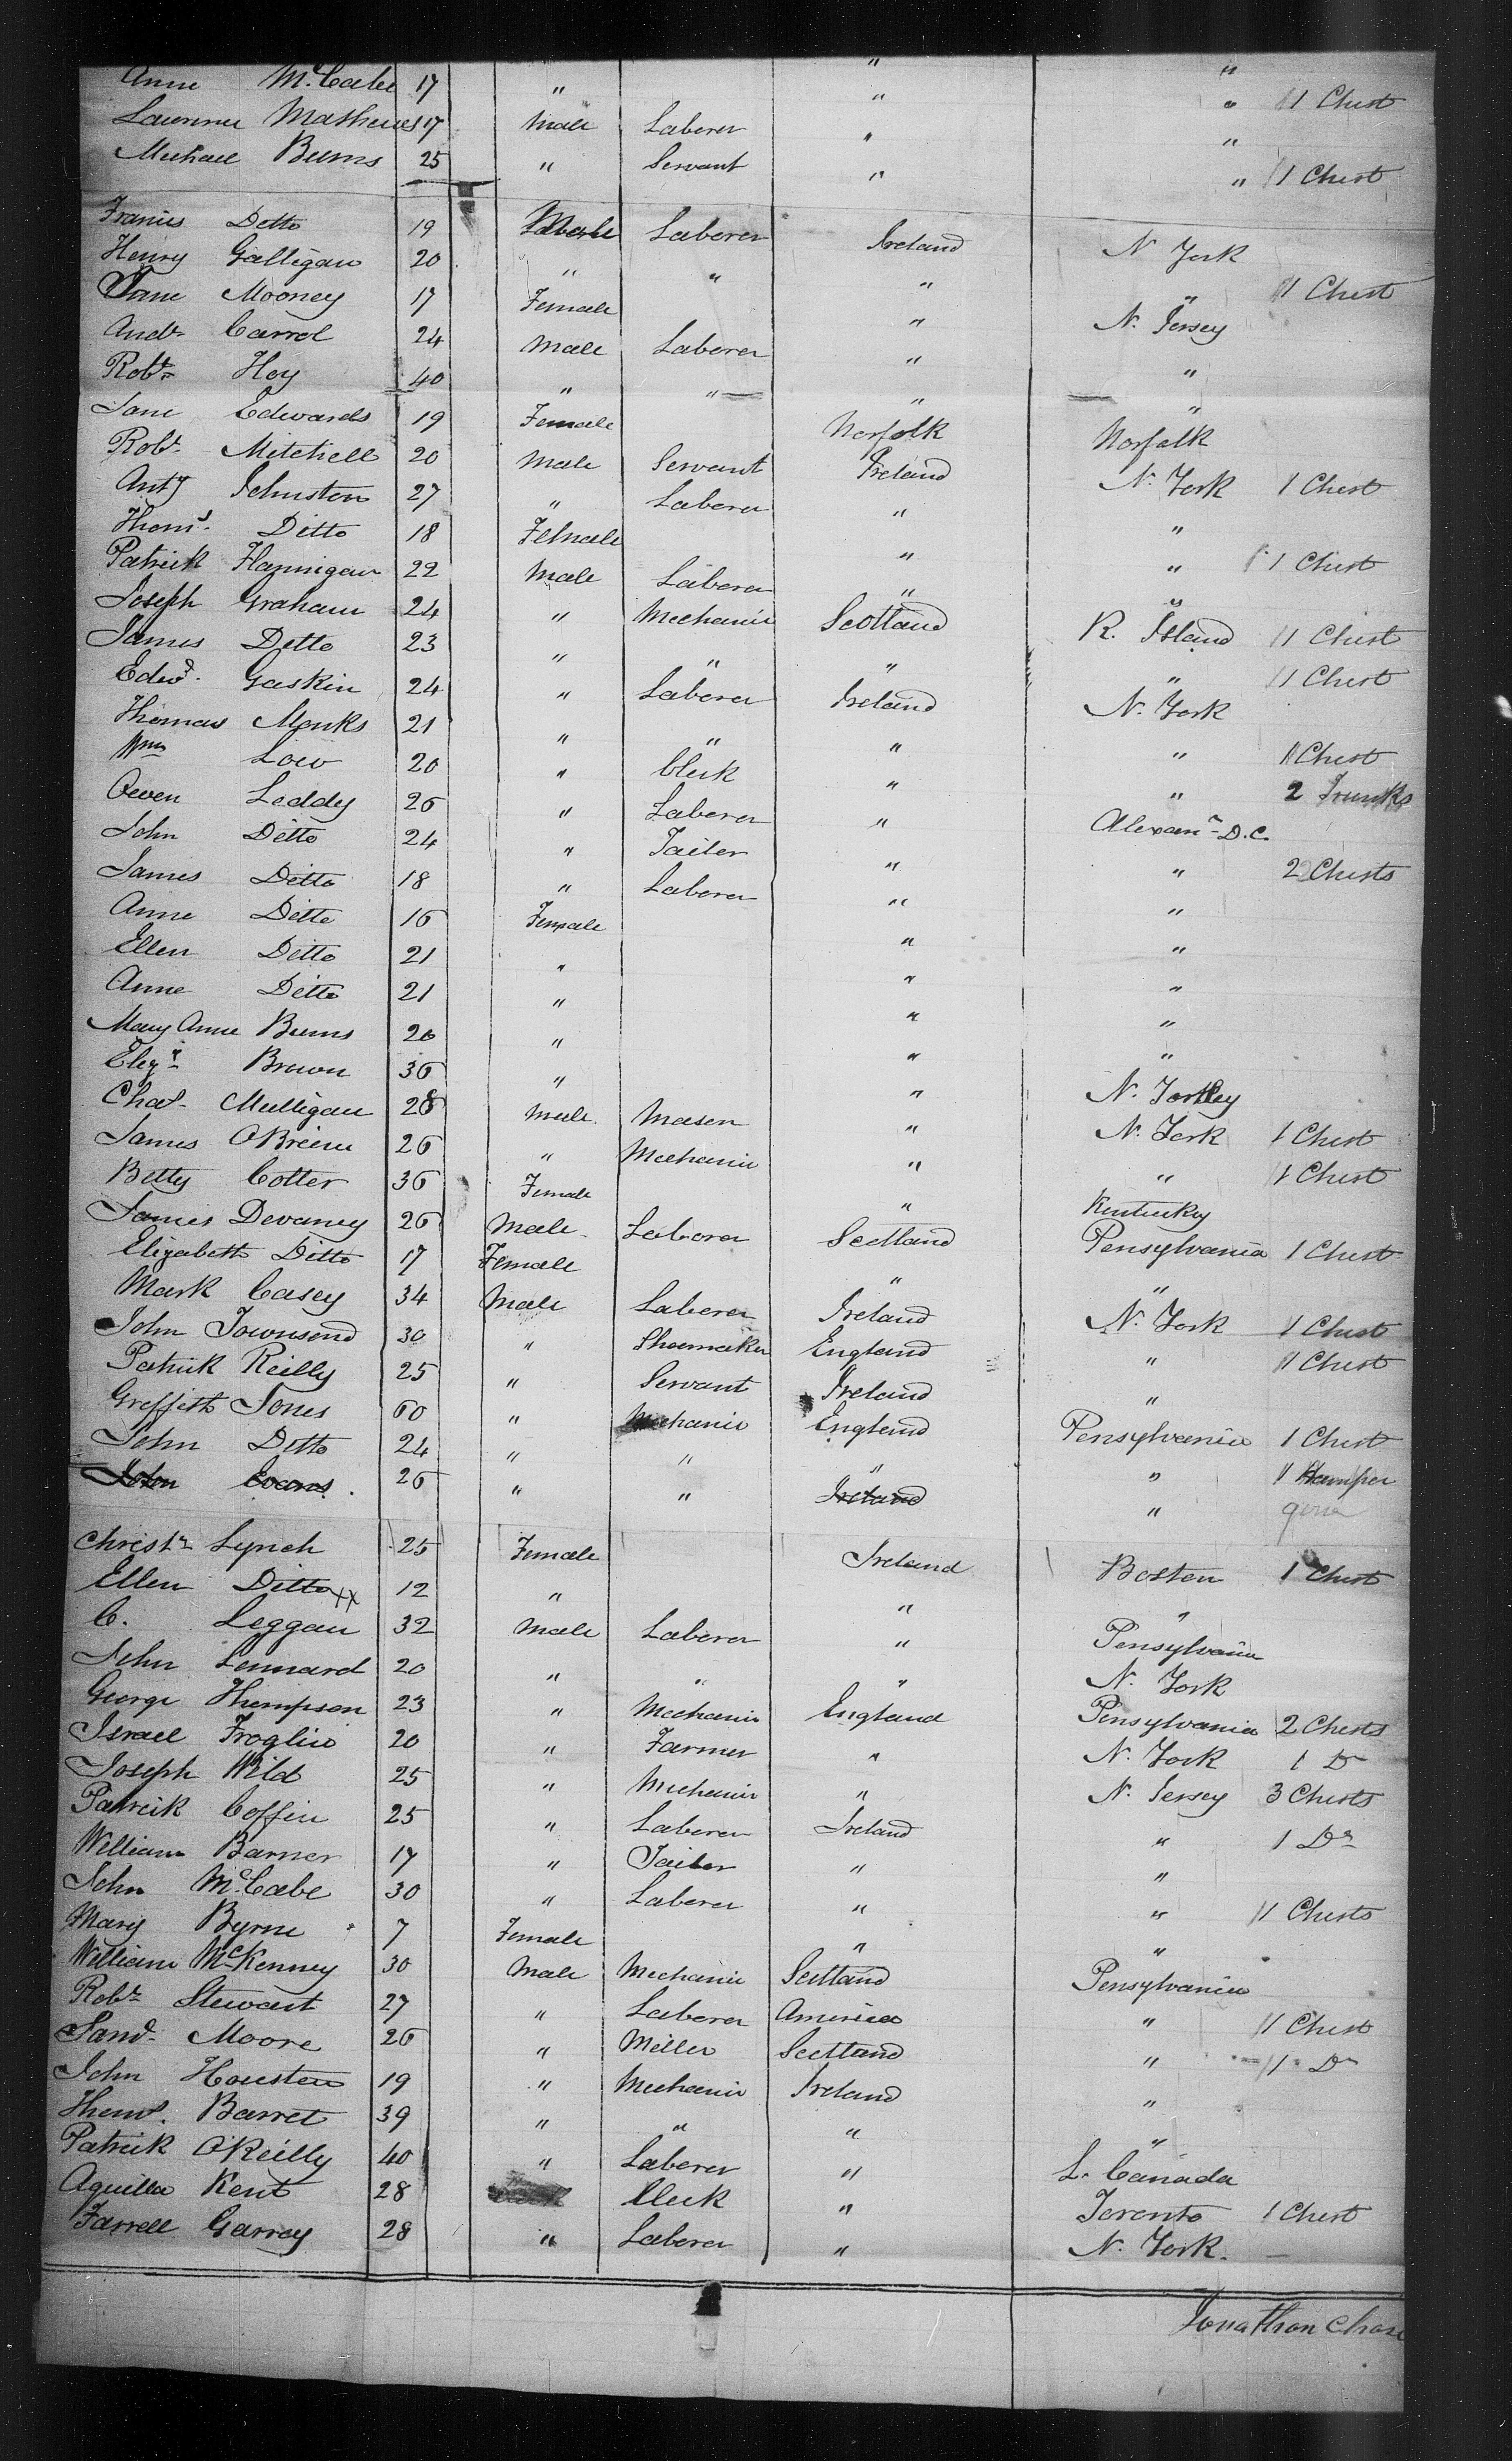 Anne McCabe 17 " " "
Lawrence Mathews 17 Male Laborer " " 1 Chest
Michael Burns 25 " Servant " " 1 Chest
Francis Ditto 19 Male Laborer Ireland N. York
Henry Galligan 20 " " " " 1 Chest
Jane Mooney 17 Female " N. Jersey
Andw Carrol 24 Male Laborer " "
Robt Hoy 40 " " " "
Jane Edwards 19 Female Norfolk Norfolk
Robt Mitchell 20 Male Servant Ireland N. York 1 Chest
Anty Johnston 27 " Laborer " "
Thoms. Ditto 18 Female " " 1 Chest
Patrick Flannigan 22 Male Laborer " "
Joseph Graham 24 " Mechanic Scotland R. Island 1 Chest
James Ditto 23 " " " " 1 Chest
Edwd. Gaskin 24 " Laborer Ireland N. York
Thomas Monks 21 " " " " 1 Chest
Wm Low 20 " Clerk " " 2 Trunks
Owen Leddy 26 " Laborer " Alexana D.C.
John Ditto 24 " Tailor " " 2 Chests
James Ditto 18 " Laborer " "
Anne Ditto 16 Female " "
Ellen Ditto 21 " " "
Anne Ditto 21 " " "
Mary Anne Burns 20 " " "
Elizr Brown 36 " " N.
Chas. Mulligan 28 Male Mason " N. York 1 Chest
James OBrien 26 " Mechanic " " 1 Chest
Betty Cotter 36 Female " Kentucky
James Devaney 26 Male Laborer Scotland Pensylvania 1 Chest
Elizabeth Ditto 17 Female " "
Mark Casey 34 Male Laborer Ireland N. York 1 Chest
John Townsend 30 " Shoemaker England " 1 Chest
Patrick Reilly 25 " Servant Ireland "
Greffith Jones 60 " Mechanic England Pensylvania 1 Chest
John Ditto 24 " " " " 1 Hamper
John Evans. 26 " " Ireland "
Christr Lynch 25 Female Ireland Boston 1 Chest
Ellen Ditto xx 12 " " "
C. Leggan 32 Male Laborer " Pensylvania
John Lennard 20 " " " N. York
George Thompson 23 " Mechanic England Pensylvania 2 Chests
Israel Froglin 20 " Farmer " N. York 1 Do
Joseph Wild 25 " Mechanic " N. Jersey 3 Chests
Patrick Coffin 25 " Laborer Ireland " 1 Do
William Barner 17 " Tailor " "
John McCabe 30 " Laborer " " 1 Chests
Mary Byrne 7 Female " "
William McKenney 30 Male Mechanic Scotland Pensylvania
Robt Stewart 27 " Laborer America " 1 Chest
Sand. Moore 26 " Miller Scotland " 1 Do
John Houston 19 " Mechanic Ireland "
Thoms. Barret 39 " " " "
Patrick O'Reilly 40 " Laborer " L. Canada
Aquilla Kent 28 Clerk " Toronto 1 Chest
Farrell Garrey 28 " Laborer " N. York.
Jonathon Chase